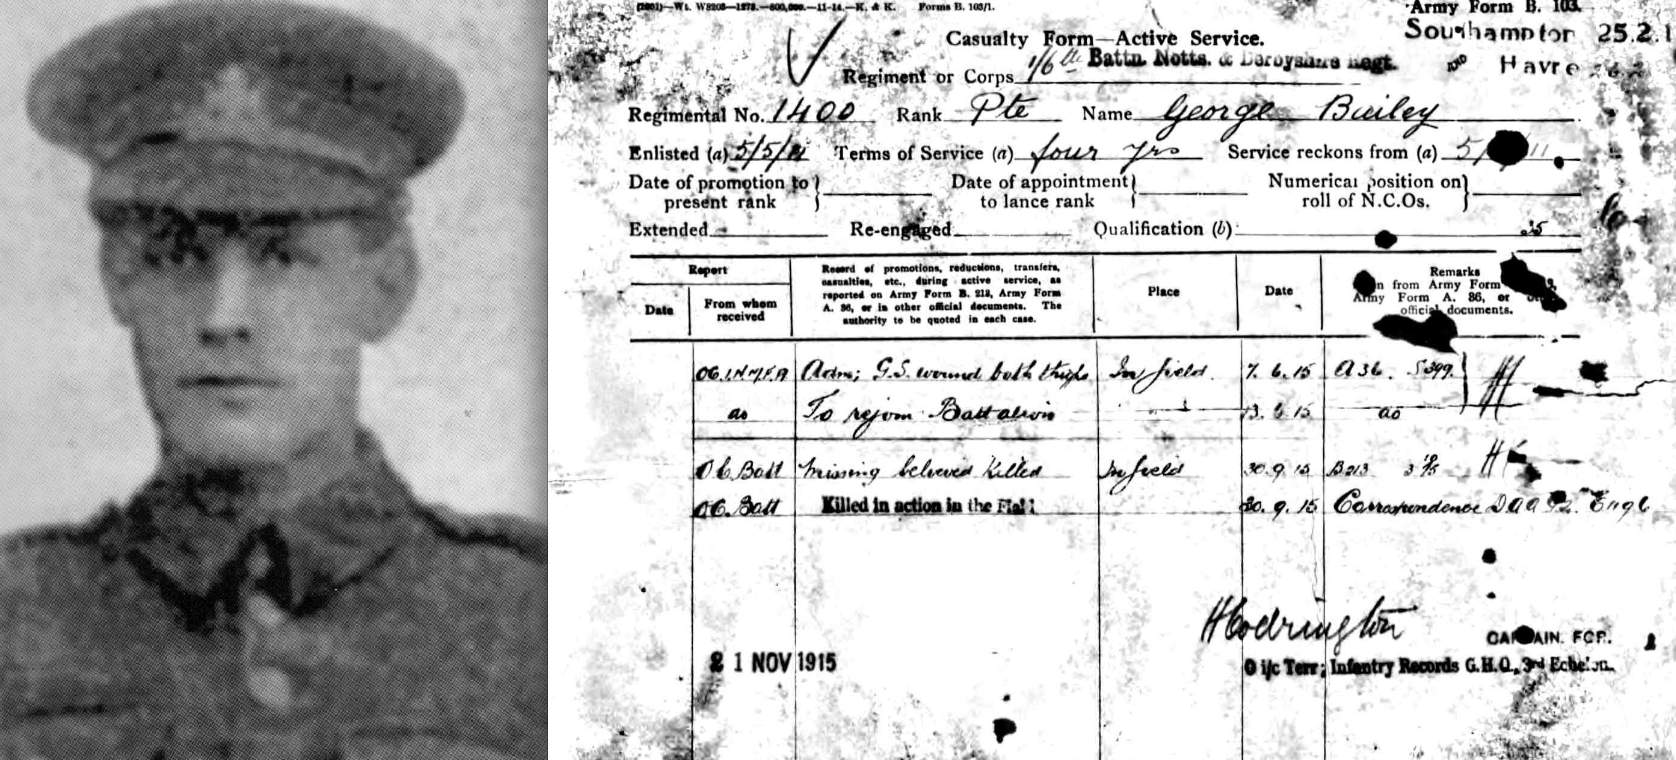 (2001)—Wt. W8208—1278.—600,000.—11-14.—K. & K. Forms B. 103/1.
Army Form B. 103.
Casualty Form—Active Service.
Southampton 25.2.1
Havre
Regiment or Corps 1/6th Battn. Notts. & Derbyshire Regt.
Regimental No. 1400 Rank Pte Name George Bailey
Enlisted (a) 5/5/11 Terms of Service (a) four yrs Service reckons from (a) 5/ 11
Date of promotion to present rank
Date of appointment to lance rank
Numerical position on roll of N.C.Os.
Extended Re-engaged Qualification (b)
Report
Date
From whom received
Record of promotions, reductions, transfers,
casualties, etc., during active service, as
reported on Army Form B. 213, Army Form
A. 36, or in other official documents. The
authority to be quoted in each case.
Place
Date
Remarks
from Army Form
Army Form A. 36, or
official documents.
Adm; G.S. wound both thighs In field. 7.6.15 A 36.
do To rejoin Battalion 13.6.15 do
OC Batt Missing believed Killed In field 30.9.15 B213
OC. Batt Killed in action in the Field 30.9.15 Correspondence
HCodrington
CAPTAIN. FOR.
O i/c Terr; Infantry Records G.H.Q., 3rd Echelon.
21 NOV 1915